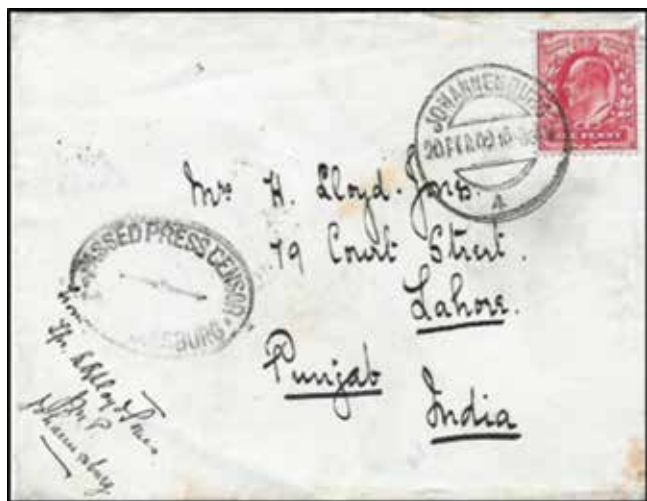 JOHANNESBURG
4
ONE PENNY
Mrs H. Lloyd-Jones.
79 Court Street.
Lahore.
Punjab
India
PASSED PRESS CENSOR
from
Lloyd Jones
Johannesburg